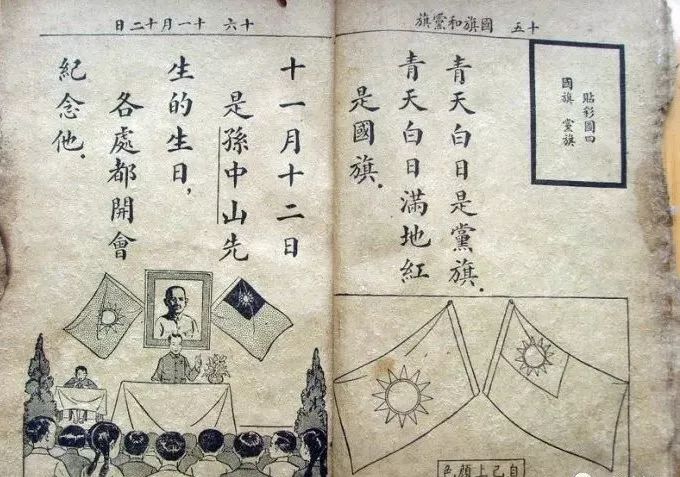 十五 國旗和黨旗
貼彩圖四
國旗 黨旗
青天白日是黨旗.
青天白日滿地紅
是國旗.
自己上顏色
十六 十一月十二日
十一月十二日
是孫中山先
生的生日,
各處都開會
紀念他.